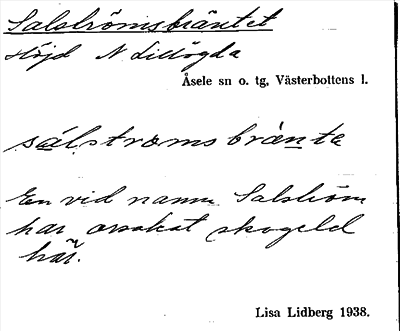 Salströmsbräntet
Höjd N Lillögda
Åsele sn o. tg, Västerbottens l.
sálstroms brànte
En vid namn Salström
har orsakat skogeld
här.
Lisa Lidberg 1938.